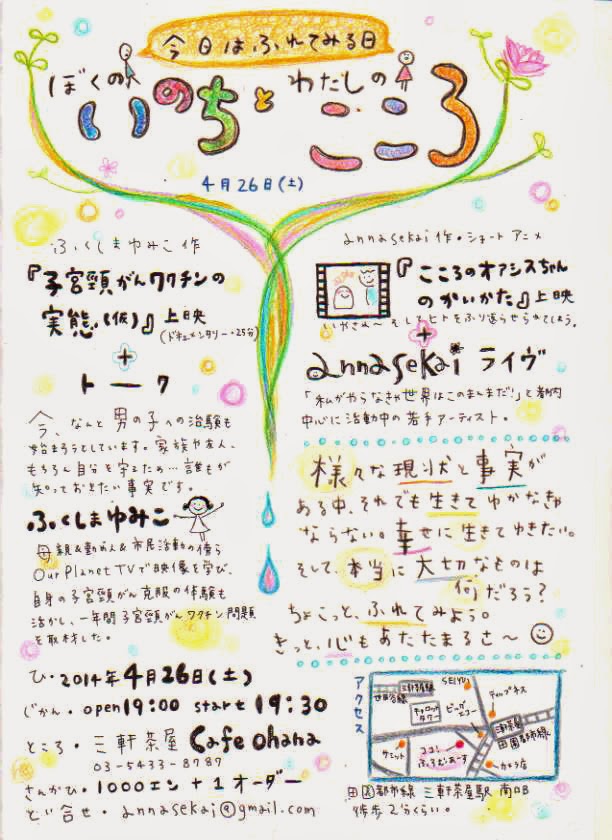 今日はふれてみる日
ぼくの わたしの
いのちとこころ
4月26日(土)
ふくしまゆみこ 作
『子宮頸がんワクチンの
実態(仮)』上映
(ドキュメンタリー・25分)
+
トーク
今、なんと男の子への治験も
始まろうとしています。家族や友人、
もちろん自分を守るため…誰もが
知っておきたい事実です。
ふくしまゆみこ
母親&勤め人&市民活動の傍ら
Our Planet TVで映像を学び、
自身の子宮頸がん克服の体験も
活かし、一年間子宮頸がんワクチン問題
を取材した。
annasekai作・ショートアニメ
『こころのオアシスちゃん
のかいかた』上映
いやされ〜 そしてヒトをふり返らせちゃてしまう。
+
annasekai ライヴ
「私がやらなきゃ世界はこのまんまだ!」と都内
中心に活動中の若手アーティスト。
様々な現状と事実が
ある中、それでも生きてゆかなきゃ
ならない。幸せに生きてゆきたい。
そして、本当に大切なものは
何だろう?
ちょこっと、ふれてみよう。
きっと、心もあたたまるさ〜
ひ・2014年4月26日(土)
じかん・open19:00 start 19:30
ところ・三軒茶屋 Cafe Ohana
03-5433-8787
さんかひ・1000エン+1オーダー
とい合せ・annasekai@gmail.com
アクセス
SEIYU
三軒茶屋
世田谷線
ティップネス
キャロット
タワー
ビッグ
エコー
三軒茶屋
田園都市線
サミット
ココ!
カメラ店
田園都市線 三軒茶屋駅 南口B
徒歩2分くらい。